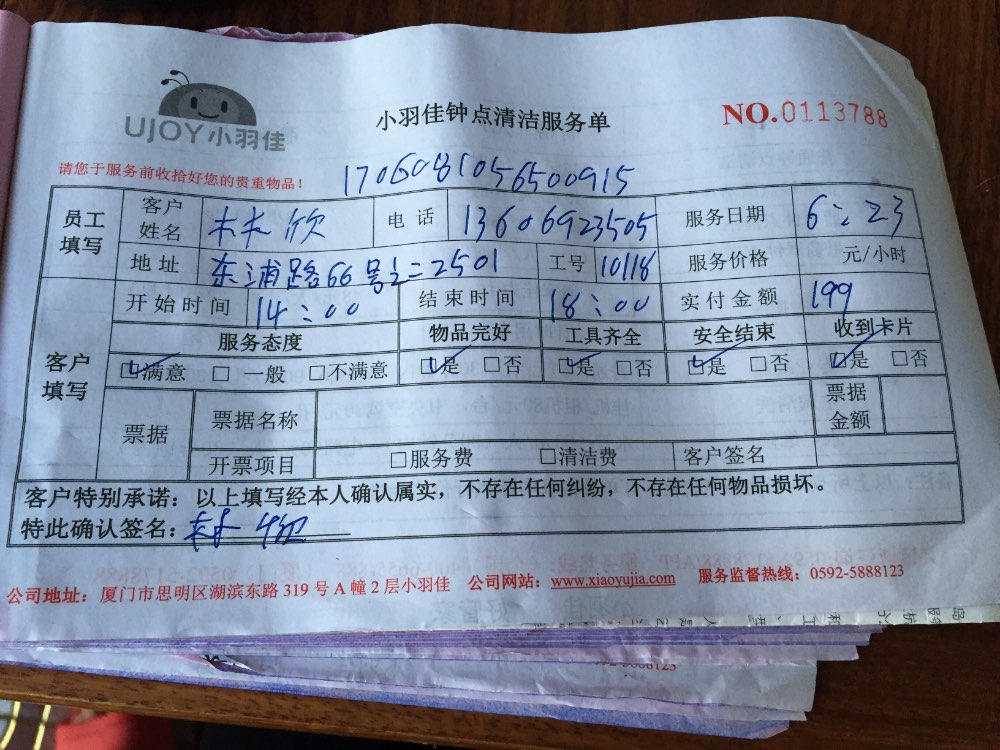 UJOY小羽佳
小羽佳钟点清洁服务单
NO.0113788
请您于服务前收拾好您的贵重物品！
1706081056500915
员工填写 客户姓名 林欣 电话 13606923505 服务日期 6:23
地址 东浦路66号之二2501 工号 10118 服务价格 元/小时
开始时间 14:00 结束时间 18:00 实付金额 199
客户填写 服务态度 物品完好 工具齐全 安全结束 收到卡片
☑满意 □一般 □不满意 ☑是 □否 ☑是 □否 ☑是 □否 ☑是 □否
票据 票据名称 票据金额
开票项目 □服务费 □清洁费 客户签名
客户特别承诺：以上填写经本人确认属实，不存在任何纠纷，不存在任何物品损坏。
特此确认签名：
公司地址：厦门市思明区湖滨东路 319 号 A 幢 2 层小羽佳 公司网站：www.xiaoyujia.com 服务监督热线：0592-5888123